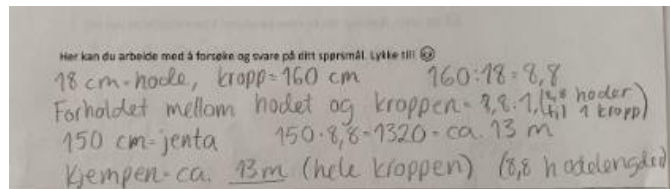 Her kan du arbeide med å forsøke og svare på ditt spørsmål. Lykke til! 😊
18 cm = hode, kropp = 160 cm 160:18=8,8
Forholdet mellom hodet og kroppen = 8,8:1, (8,8 hoder til 1 kropp)
150 cm = jenta 150·8,8=1320 = ca. 13 m
Kjempen = ca. 13 m (hele kroppen) (8,8 hodelengder)